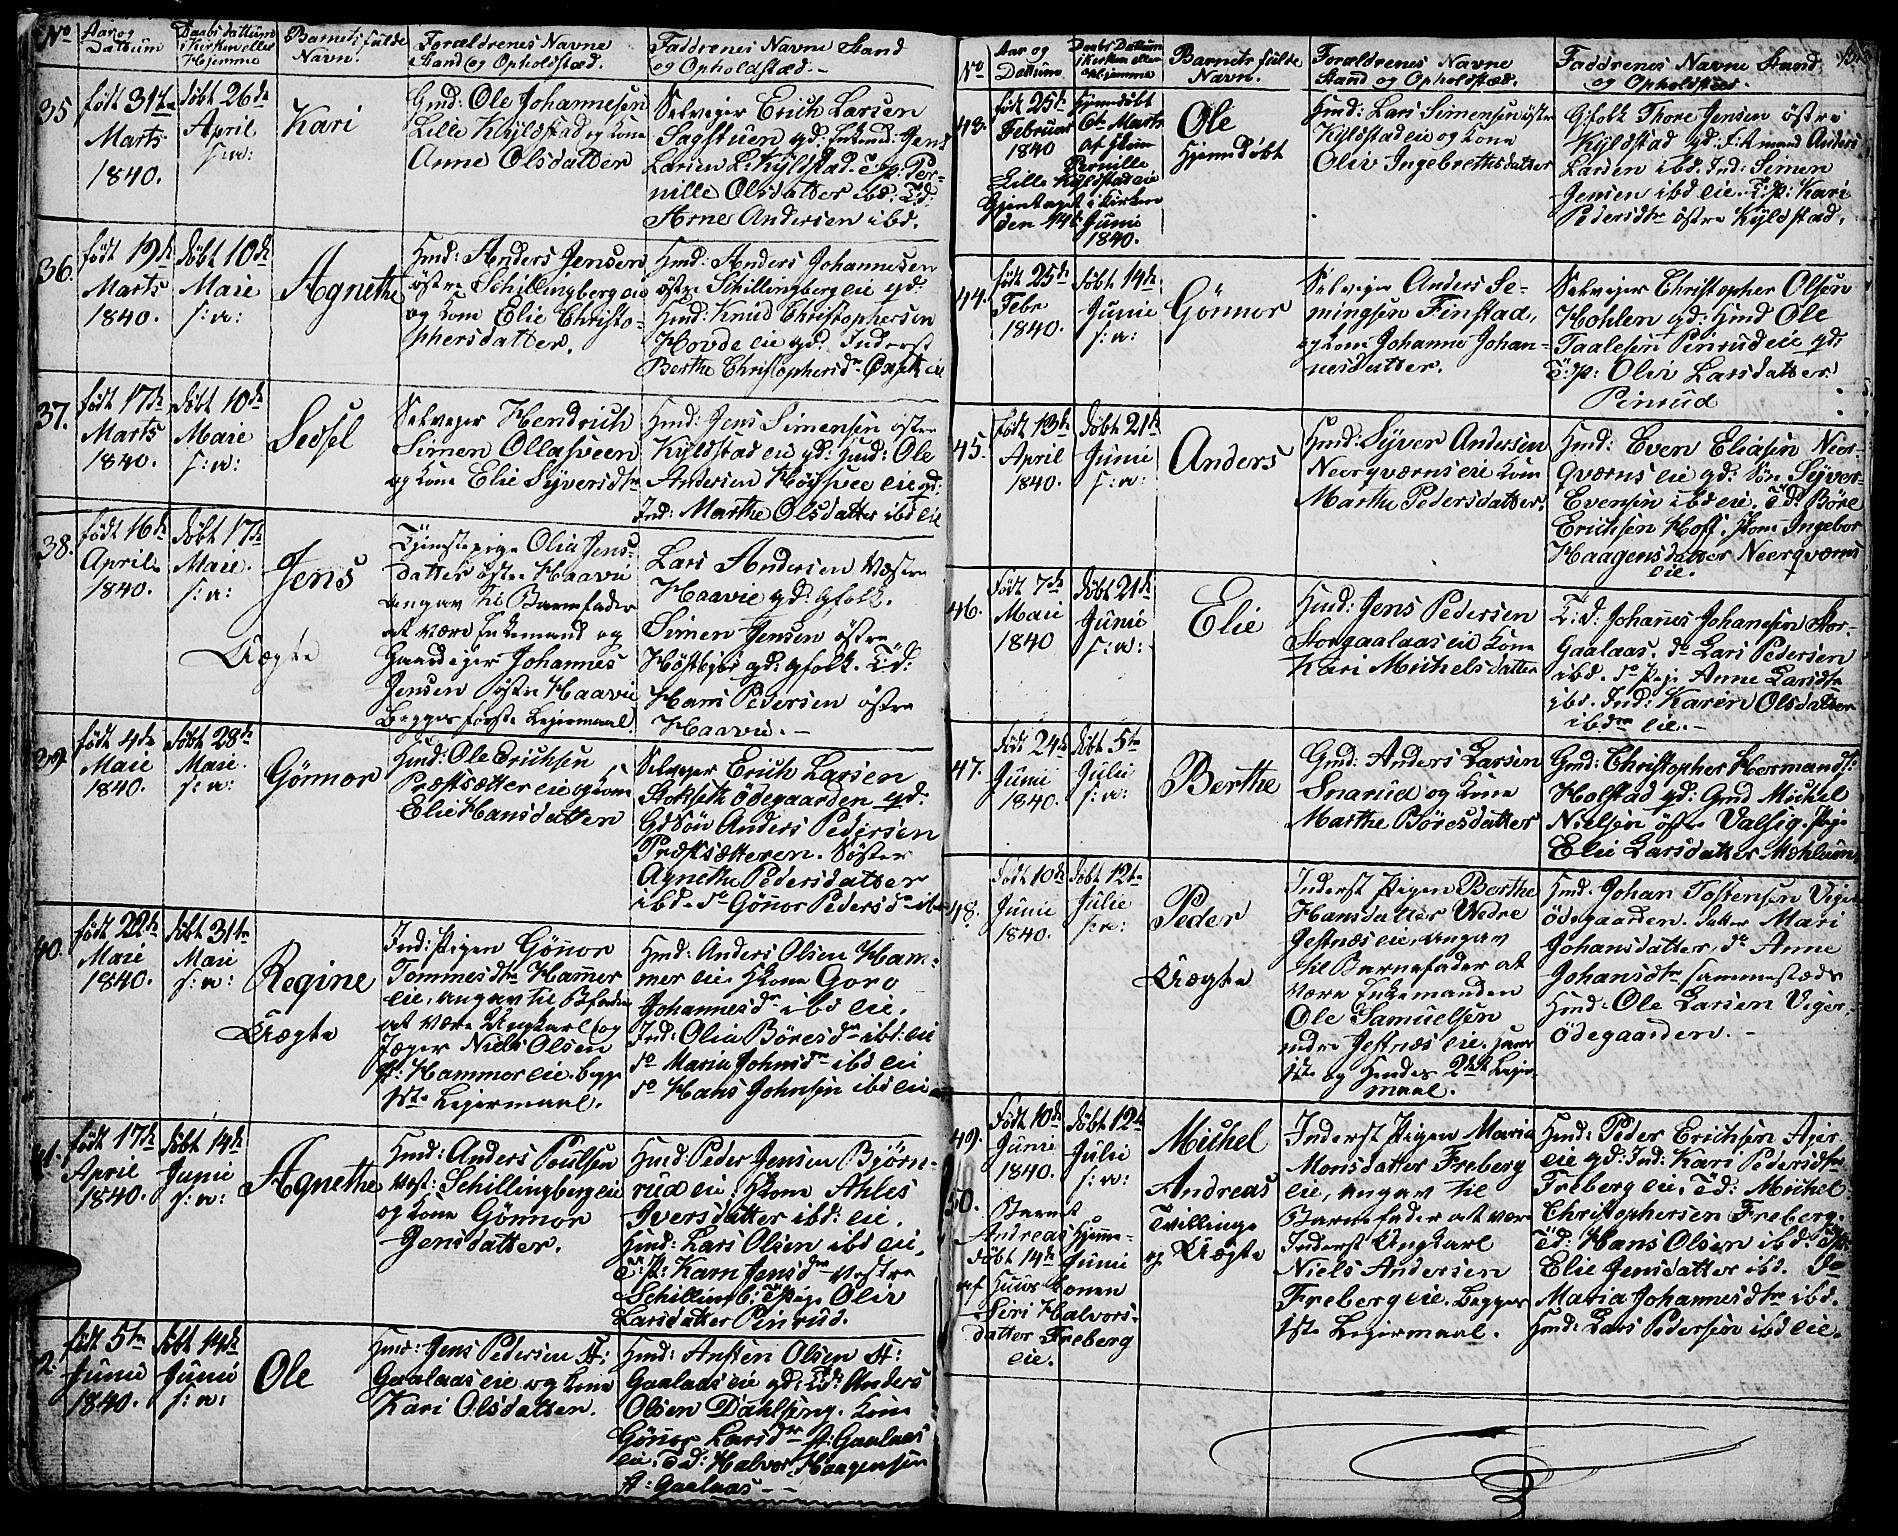 No
Aar og Datum
Daabs dattum i Kirken eller Hjemme
Barnets fulde Navn.
Forældrenes Navne Stand og Opholdstæd.
Faddrenes Navne Stand og Opholdstæd.
35
født 31te Marts 1840.
døbt 26de April s: a:
Kari
Gmd: Ole Johannesen
Lille Kyldstad og Kone
Anne Olsdatter
Selveger Erich Larsen
Sagstuen gd: Enkemd: Jens
Larsen L: Kyldstad. T: p: Per-
nille Olsdatter ibd: T:d:
Arne Andersen ibd.
36.
født 19de Marts 1840.
døbt 10de Maie s: a:
Agnethe
Hmd: Anders Jensen
østre Schillingberg eie
og Kone Elie Christo-
phersdatter.
Hmd: Anders Johannesen
østre Schillingberg eie gd:
Hmd: Knud Christophersen
Hovde eie gd: Inderst
Berthe Christophersdr eie
37.
født 17de Marts 1840.
døbt 10de Maie s: a:
Sedsel
Selveger Hendrich
Simen Ollasveen
og Kone Elie Syversdtr
Hmd: Jens Simensen østre
Kyldstad eie gd: Hmd: Ole
Andersen eie gd:
Ind: Marthe Olsdatter ibd eie
38.
født 16de April 1840.
døbt 17de Maie. s: a:
Jens
Uægte
Tjenstepige Olia Jens-
datter østre Haavie
angav til Barnefader
at være Enkemand og
Gaardeger Johannes
Jensen østre Haavie
Begges første Lejermaal.
Lars Andersen Vestre
Haavie gd: gfolk.
Simen Jensen østre
gd: gfolk. T:d:
Hans Pedersen østre
Haavie. -
39.
født 4de Maie 1840.
døbt 28de Maie. s: a:
Gönnor
Hmd: Ole Erichsen
Præstsætter eie og Kone
Elie Hansdatter
Selveger Erich Larsen
Stokseth ödegaarden gd:
Gd Søn Anders Pedersen
Præstsætteren. Søster
Agnethe Pedersdatter
ibd. do Gönor Pedersdr ibd
40.
født 22de Maie 1840.
døbt 31te Maie s: a:
Regine
Uægte
Ind: Pigen Gönor
Tommesdtr Hammer
eie, angav til Bfader
at være Ungkarl og
Jæger Niels Olsen
Hammer eie. begges
1ste Lejermaal.
Hmd: Anders Olsen Ham-
mer eie. Kone Goro
Johannesdr ibd eie.
Ind: Olia Böresdr ibd: eie
do Maria Johnsdr ibd eie
do Hans Johnsen ibd eie
41.
født 17de April 1840.
døbt 14de Junie s: a:
Agnethe
Hmd: Anders Poulsen
vest: Schillingberg eie
og Kone Gönnor
Jensdatter.
Hmd Peder Jensen Björn-
rud eie: Kone Ahles
Iversdatter ibd: eie.
Hmd: Lars Olsen ibd eie.
T: p: Karn Jensdr vestre
Schillingb: T Pige Oliv
Larsdatter Pinrud.
2
født 5te Junie 1840.
døbt 14de Junie s: a:
Ole
Hmd: Jens Pedersen St:
Gaalaas eie og Kone
Kari Olsdatter.
Hmd: Ansten Olsen St:
Gaalaas eie gd: T:d: Anders
Olsen Dahlseng. Kone
Gönor Larsdr St: Gaalaas
eie. T:d: Halvor Haagensen
St: Gaalaas - -
No
Aar og Dattum
Daabs Dattum i Kirken eller Hjemme
Barnets fulde Navn.
Forældrenes Navne Stand og Opholdsted.
Faddrenes Navne Stand og Opholdsted.
43.
født 25de Februar 1840
Hjemdøbt Marts af Pernille
Lille Kyldstad eie
Gjentaget i Kirken
den 14de Junie 1840.
Ole
Hjemdøbt
Hmd: Lars Simensen östre
Kyldstad eie og Kone
Oliv Ingebrethsdatter
Gfolk Thore Jensen östre
Kyldstad gd: Enkemand Anders
Larsen ibd. Ind: Simen
Jensen ibd eie. T:p: Kari
Pedersdtr östre Kyldstad.
44.
født 25de Febr 1840.
døbt 14de Junie s: a:
Gönnor
Selveger Anders Se-
mingsen Finstad,
og Kone Johanne Johan-
nesdatter.
Selveger Christopher Olsen
Kohlen gd: Hmd Ole
Taalesen Pinrud eie gd:
T:p: Oliv Larsdatter
Pinrud
45.
født 13de April 1840.
døbt 21de Junie s: a:
Anders
Hmd: Syver Andersen
Neerqværns eie Kone
Marthe Pedersdatter.
Hmd: Even Eliasen Neer-
qværns eie gd: Søn Syver
Evensen ibd eie. T:d: Böre
Erichsen Hoff. Kone Ingebor
Haagensdatter Neerqværns
eie.
46.
født 7de Maie 1840
døbt 21de Junie s: a:
Elie
Hmd: Jens Pedersen
Storgaalaas eie Kone
Kari Michelsdatter
T: d: Johanes Johanesen Stor-
Gaalaas. do Lars Pedersen
ibd. do Pige Anne Larsdtr
ibd. Ind: Karen Olsdatter
ibdm eie. -
47.
født 24de Junie 1840.
døbt 5te Julie s: a:
Berthe
Gmd: Anders Larsen
Snarud og Kone
Marthe Böresdatter
Gmd: Christopher Hermands:
Holstad gd: Gmd Michel
Nielsen östre Valsig. Pige
Elie Larsdatter Mæhlum.
48.
født 10de Junie 1840.
døbt 12te Julie s: a:
Peder
Uægte
Inderst Pigen Berthe
Hansdatter Nedre
Jestnæs eie, angav
til Barnefader at
være Enkemanden
Ole Samuelsen
nedre Jestnæs eie. hans
1ste og hendes 2det Lejer-
maal.
Hmd: Johan Tostensen Viger
ödegaarden. datter Mari
Johansdatter, do Anne
Johansdtr sammesteds
Hmd: Ole Larsen Viger-
ödegaarden. -
49.
født 10de Junie 1840.
døbt 12te Julie s: a:
Michel
50.
Andreas
Tvillinge
og Uægte
Barnet
Andreas Hjemme-
døbt 14de Junie
af Huuskonen
Siri Halvors-
datter Freberg
eie.
Inderst Pigen Maria
Monsdatter Freberg
eie, angav til
Barnefader at være
Inderst Ungkarl
Niels Andersen
Freberg eie. begges
1ste Lejermaal.
Hmd: Peder Erichsen Ajer
eie gd: Ind: Kari Pedersdtr
Freberg eie. T:d: Michel
Christophersen Freberg.
T:d: Hans Olsen ibd. T:p:
Elie Jensdatter ibd. do
Maria Johannesdtr ibd.
Hmd: Lars Pedersen ibd eie.